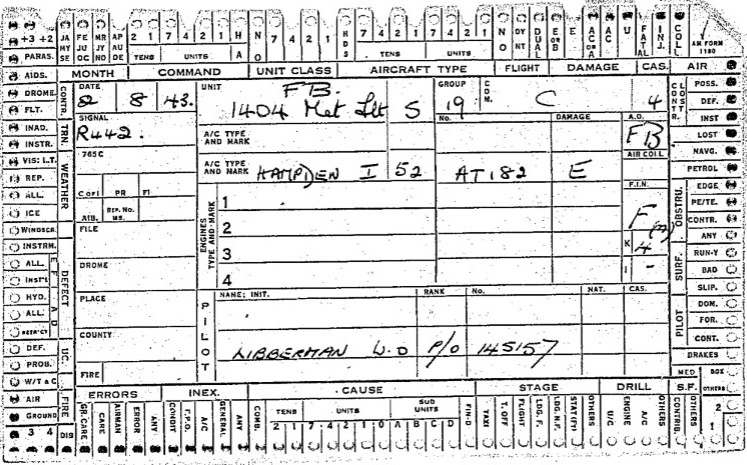 +3 +2 JA FE MR AP 2 1 7 4 2 1 H N 7 4 2 1 HDS 7 4 2 1 7 4 2 1 N DY DUAL E AC AC U FATAL INJ. COLL AM FORM
MY JU JY AU A O O NT OR B OR A 1180
SE OC NO DE
PARAS. TENS UNITS TENS UNITS
AIDS. MONTH COMMAND UNIT CLASS AIRCRAFT TYPE FLIGHT DAMAGE CAS. AIR
DROME. CONTR. DATE UNIT FB. GROUP COM. CONTR. CLOST POSS.
2 8 43. 1404 Met Flt S 19 C 4 DEF.
FLT. SIGNAL No. DAMAGE A.D. INST
INAD. TRN. R442. A/C TYPE AND MARK FB LOST
INSTR. 765C AIR COLL NAVG.
VIS: L.T. WEATHER A/C TYPE AND MARK HAMPDEN I 52 AT182 E PETROL
REP. C of I PR FI F.I.N. OBSTRU. EDGE
ALL. ENGINES TYPE AND MARK 1 PE/TE.
ICE AIB. REP. No. MS. 2 F (M) CONTR.
WINDSCR. FILE K 4 ANY
INSTRM. DEFECT 3 SURF. RUN-Y
ALL. DROME I - BAD
INST'L 4 SLIP.
HYD. PLACE PILOT NAME; INIT. RANK No. NAT. CAS. PILOT DOM.
ALL. FOR.
COUNTY LIBBERMAN W.D P/O 145157 CONT.
DEF. UC BRAKES
PROB. FIRE MED BOX
W/T & C ERRORS INEX. CAUSE STAGE DRILL S.F. OTHERS
AIR FIRE GR. CARE CARE AIRMAN ERROR ANY CONDIT F.P.O. A/C GENERAL ANY COMB. TENS UNITS SUB UNITS FIN-D TAXI T. OFF FLIGHT LDG. F. LDG. R.F. STAT(PY) OTHERS U/C ENGINE A/C OTHERS CONTRIB. OTHERS 2
GROUND 2 1 7 4 2 1 0 A B C D 1
3 4 DIS